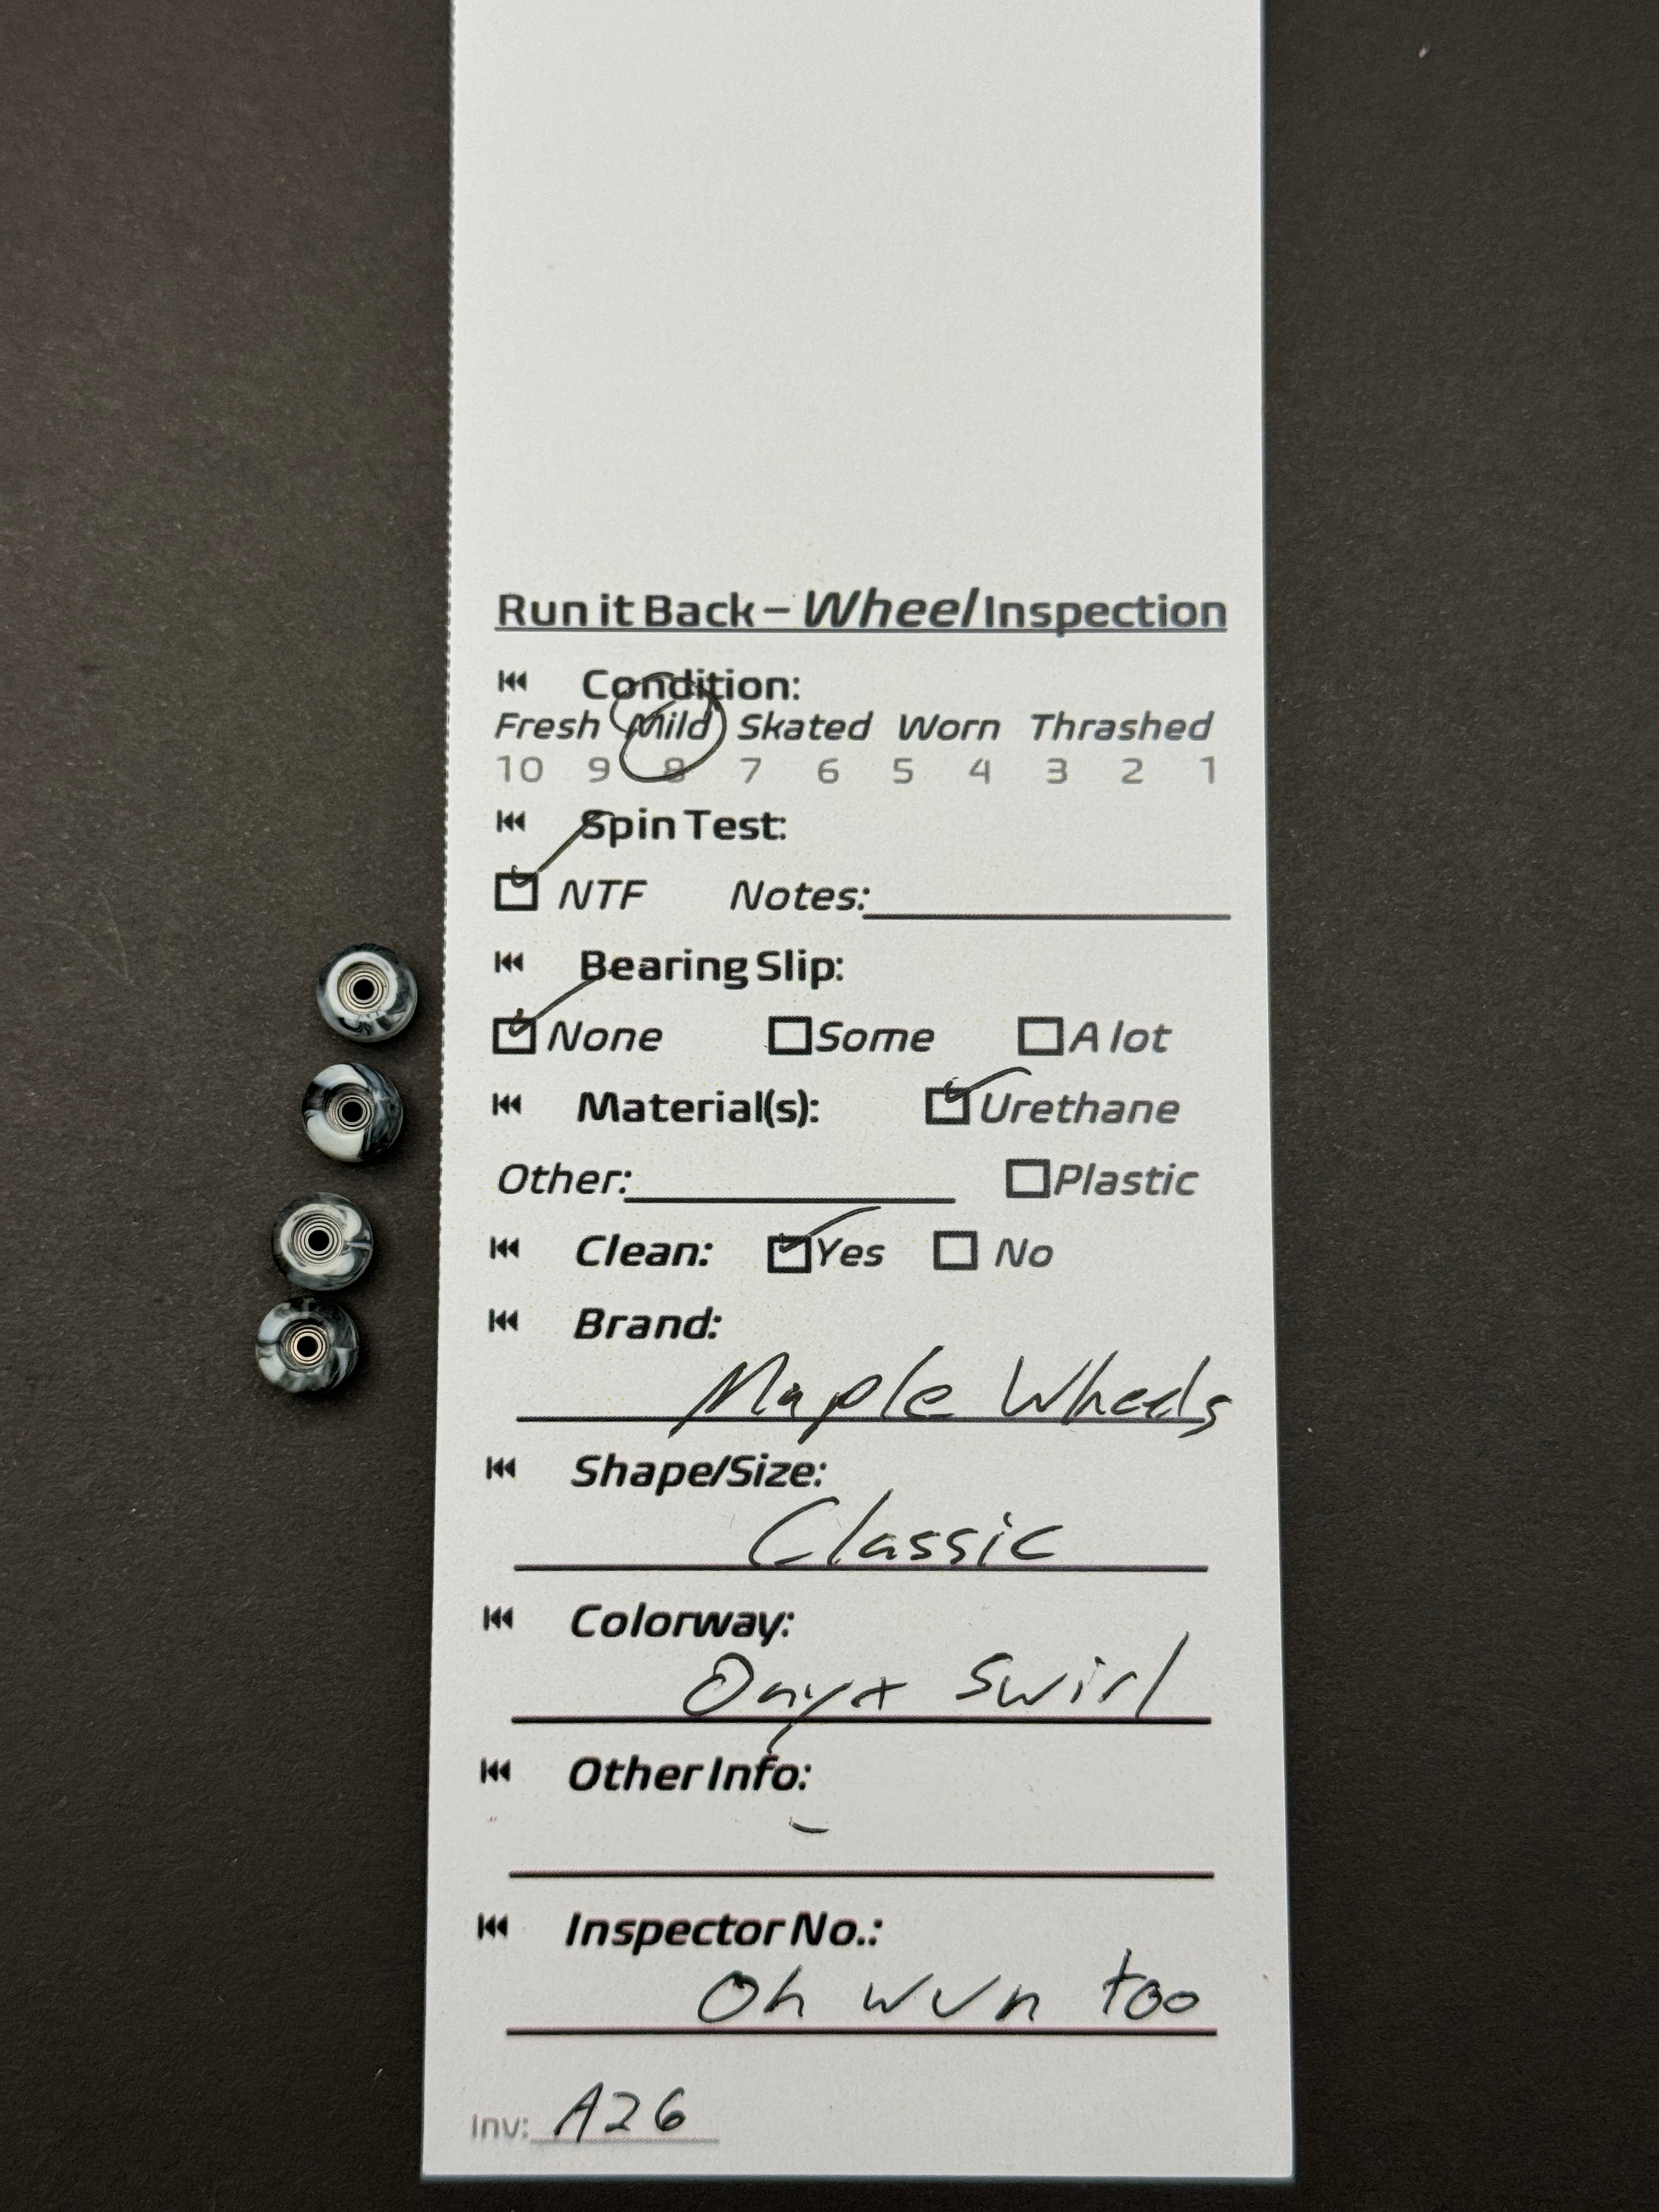 Run it Back – Wheel Inspection
Condition:
Fresh Mild Skated Worn Thrashed
10 9 8 7 6 5 4 3 2 1
Spin Test:
NTF Notes:
Bearing Slip:
None Some A lot
Material(s): Urethane
Other: Plastic
Clean: Yes No
Brand:
Maple Wheels
Shape/Size:
Classic
Colorway:
Onyx Swirl
Other Info:
-
Inspector No.:
Oh wun too
Inv: A26